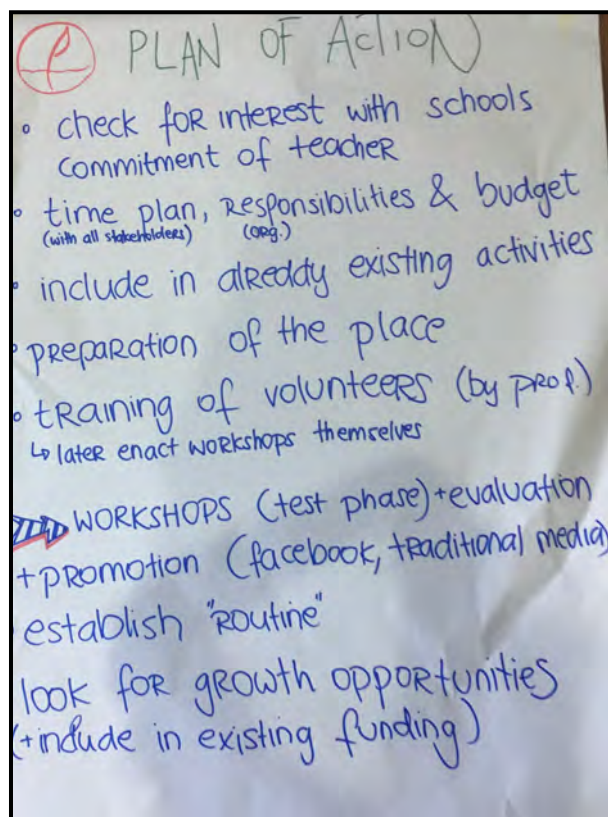 PLAN OF ACTION
• check for interest with schools
commitment of teacher
• time plan, responsibilities & budget
(with all stakeholders) (org.)
• include in alreddy existing activities
• preparation of the place
• training of volunteers (by prof.)
↳ later enact workshops themselves
WORKSHOPS (test phase) + evaluation
+ promotion (facebook, traditional media)
establish "routine"
look for growth opportunities
(+ include in existing funding)